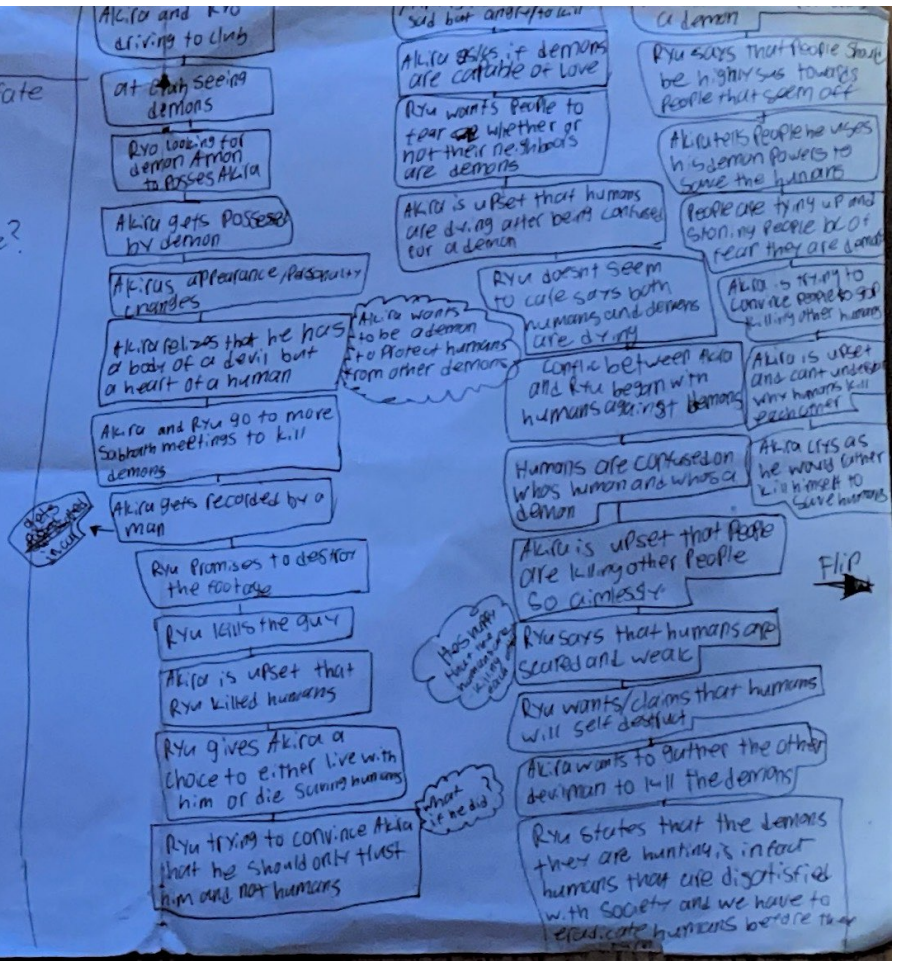 Akira and Ryo
driving to club
at club seeing
demons
Ryo looking for
demon Amon
to Posses Akira
Akira gets Possesed
by demon
Akiras appearance/Personality
changes
Akira relizes that he has
a body of a devil but
a heart of a human
Akira wants
to be a demon
to Protect humans
from other demons
Akira and Ryu go to more
Sabbath meetings to kill
demons
Akira gets recorded by a
man
gets
in car
Ryu Promises to destroy
the footage
Ryu kills the guy
Akira is upset that
Ryu killed humans
Ryu gives Akira a
choice to either live with
him or die saving humans
what
if he did
Ryu trying to convince Akira
that he should only trust
him and not humans
sad but angry/to kill
Akira asks if demons
are capable of Love
Ryu wants People to
fear whether or
not their neighbors
are demons
Akira is upset that humans
are dying after being confused
for a demon
Ryu doesnt seem
to care says both
humans and demons
are dying
Conflic between Akira
and Ryu began with
humans against demons
Humans are confused on
whos human and whos a
demon
Akira is upset that People
are killing other People
so aimlessly
Hes happy
that
humans are
killing
each
Ryu says that humans are
scared and weak
Ryu wants/claims that humans
will self destruct
Akira wants to gather the other
devilman to kill the demons
Ryu states that the demons
they are hunting is infact
humans that are disatisfied
with society and we have to
eradicate humans before they
a demon
Ryu says that People should
be highly sus towards
People that seem off
Akira tells People he uses
his demon Powers to
save the humans
People are tying up and
stoning People bc of
fear they are demons
Akira is trying to
convince People to stop
killing other humans
Akira is upset
and cant understand
why humans kill
eachother
Akira crys as
he would rather
kill himself to
save humans
Flip